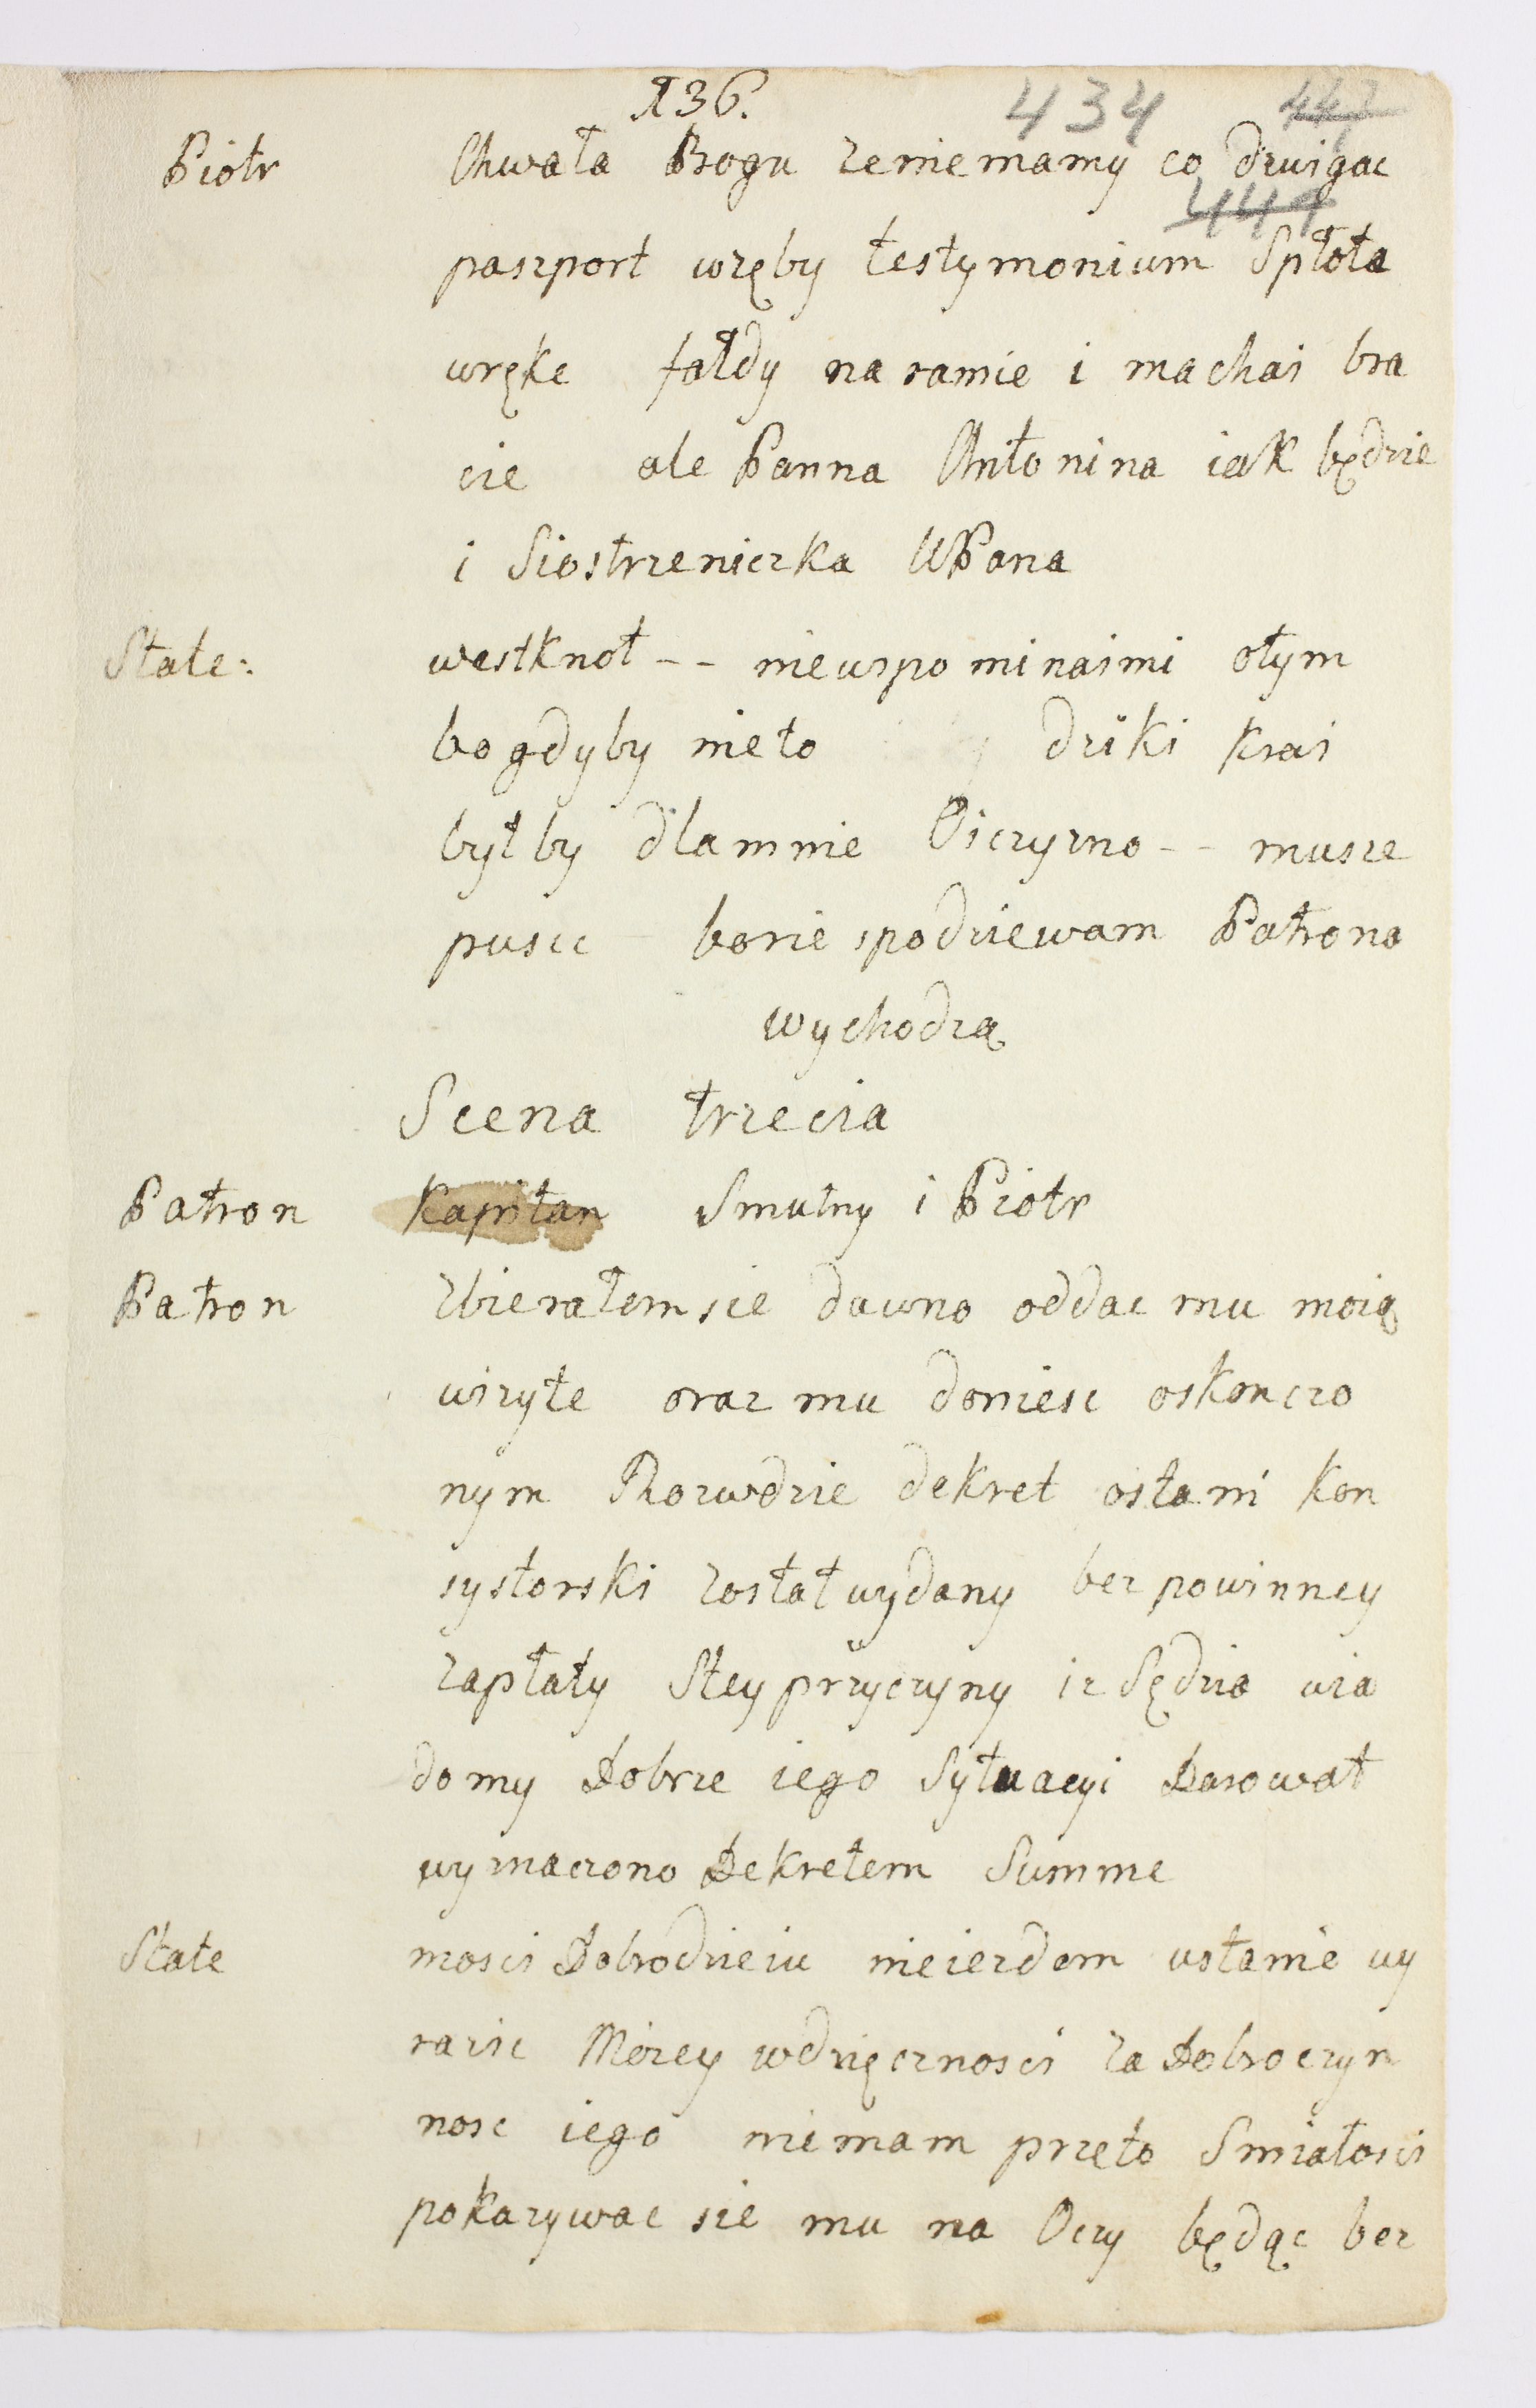 136. 434 447
Piotr Chwała Bogu zeniemamy co dzwigac
444
paszport wzęby testymonium Spłota
wrękę fałdy na ramie i machai bra
cie ale Panna Antonina iak będzie
i Siostrzeniczka WPana
State: westknoł -- niewspominaimi otym
bogdyby nieto dziki krai
byłby dlamnie Oiczyzno -- musze
puscic bosie spodziewam Patrona
wychodzą
Scena trzecia
Patron Kapitan Smutny i Piotr
Patron Zbierałem sie dawno oddac mu moią
wizyte oraz mu doniesc oskonczo
nym Rozwdzie dekret ostatni kon
systorski został wydany bez powinney
zapłaty Stey przyczyny iz Sędzia wia
domy Dobrze iego Sytuacyi Darował
wyznaczono Dekretem Summe
State mosci Dobrodzieiu nieiezdem wstanie wy
razic Moiey wdzięcznosci za Dobroczyn
nosc iego niemam przeto Smiałosci
pokazywac sie mu na Oczy będąc bez